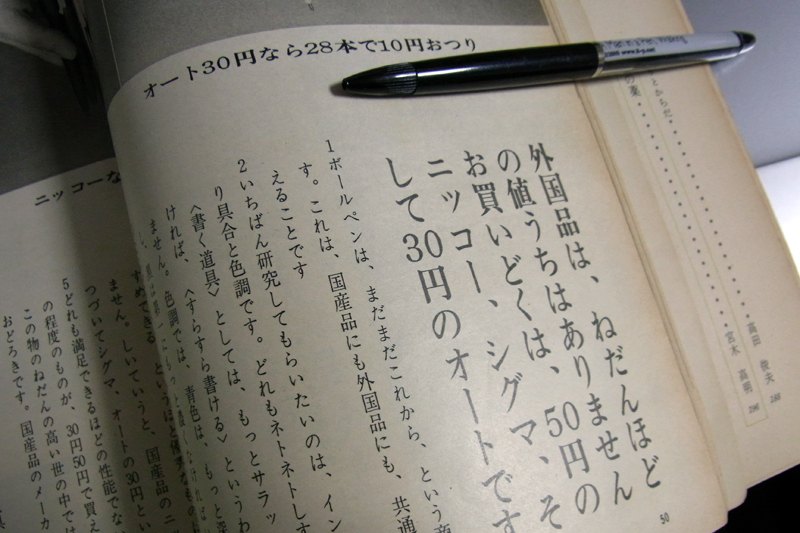 オート30円なら28本で10円おつり
ニッコーな
外国品は、ねだんほど
の値うちはありません
お買いどくは、50円の
ニッコー、シグマ、そ
して30円のオートです
1ボールペンは、まだまだこれから、という商
す。これは、国産品にも外国品にも、共通
えることです
2いちばん研究してもらいたいのは、イン
り具合と色調です。どれもネトネトしす
〈書く道具〉としては、もっとサラッ
ければ、〈すらすら書ける〉というわ
ません。色調では、青色は、もっと深
すめできる
ません。しいていうと、国産品のニ
つづいてシグマ、オートの30円とい
5どれも満足できるほどの性能でな
の程度のものが、30円50円で買え
この物のねだんの高い世の中では
おどろきです。国産品のメーカ
50
とからだ
の薬
高田 俊夫
宮木 高明